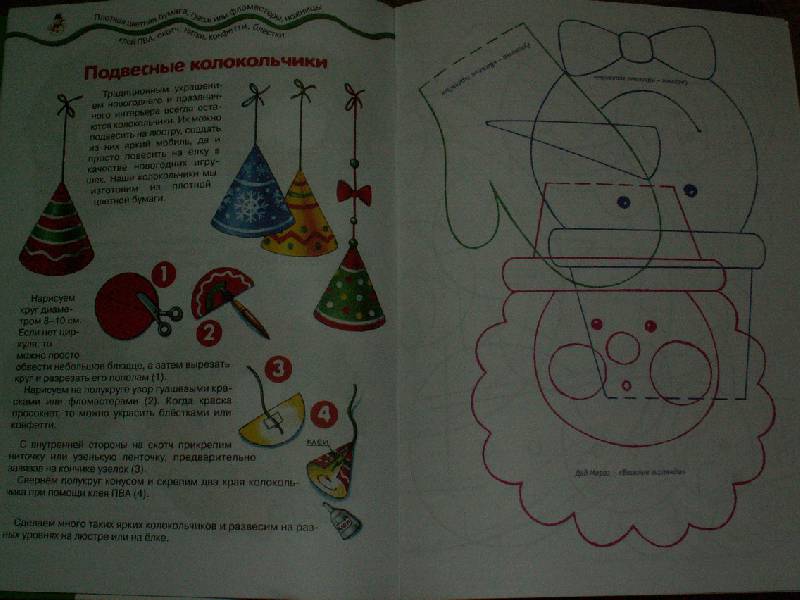 Плотная цветная бумага, гуашь или фломастеры, ножницы
клей ПВА, скотч, нитки, конфетти, блёстки
Подвесные колокольчики
Традиционным украшени-
ем новогоднего и празднич-
ного интерьера всегда оста-
ются колокольчики. Их можно
подвесить на люстру, создать
из них яркий мобиль, да и
просто повесить на ёлку в
качестве новогодних игру-
шек. Наши колокольчики мы
изготовим из плотной
цветной бумаги.
1
2
Нарисуем
круг диаме-
тром 8–10 см.
Если нет цир-
куля, то
можно просто
обвести небольшое блюдце, а затем вырезать
круг и разрезать его пополам (1).
Нарисуем на полукруге узор гуашевыми кра-
сками или фломастерами (2). Когда краска
просохнет, то можно украсить блёстками или
конфетти.
3
4
КЛЕЙ
С внутренней стороны на скотч прикрепим
ниточку или узенькую ленточку, предварительно
завязав на кончике узелок (3).
Свернём полукруг конусом и скрепим два края колоколь-
чика при помощи клея ПВА (4).
Сделаем много таких ярких колокольчиков и развесим на раз-
ных уровнях на люстре или на ёлке.
Дед Мороз –